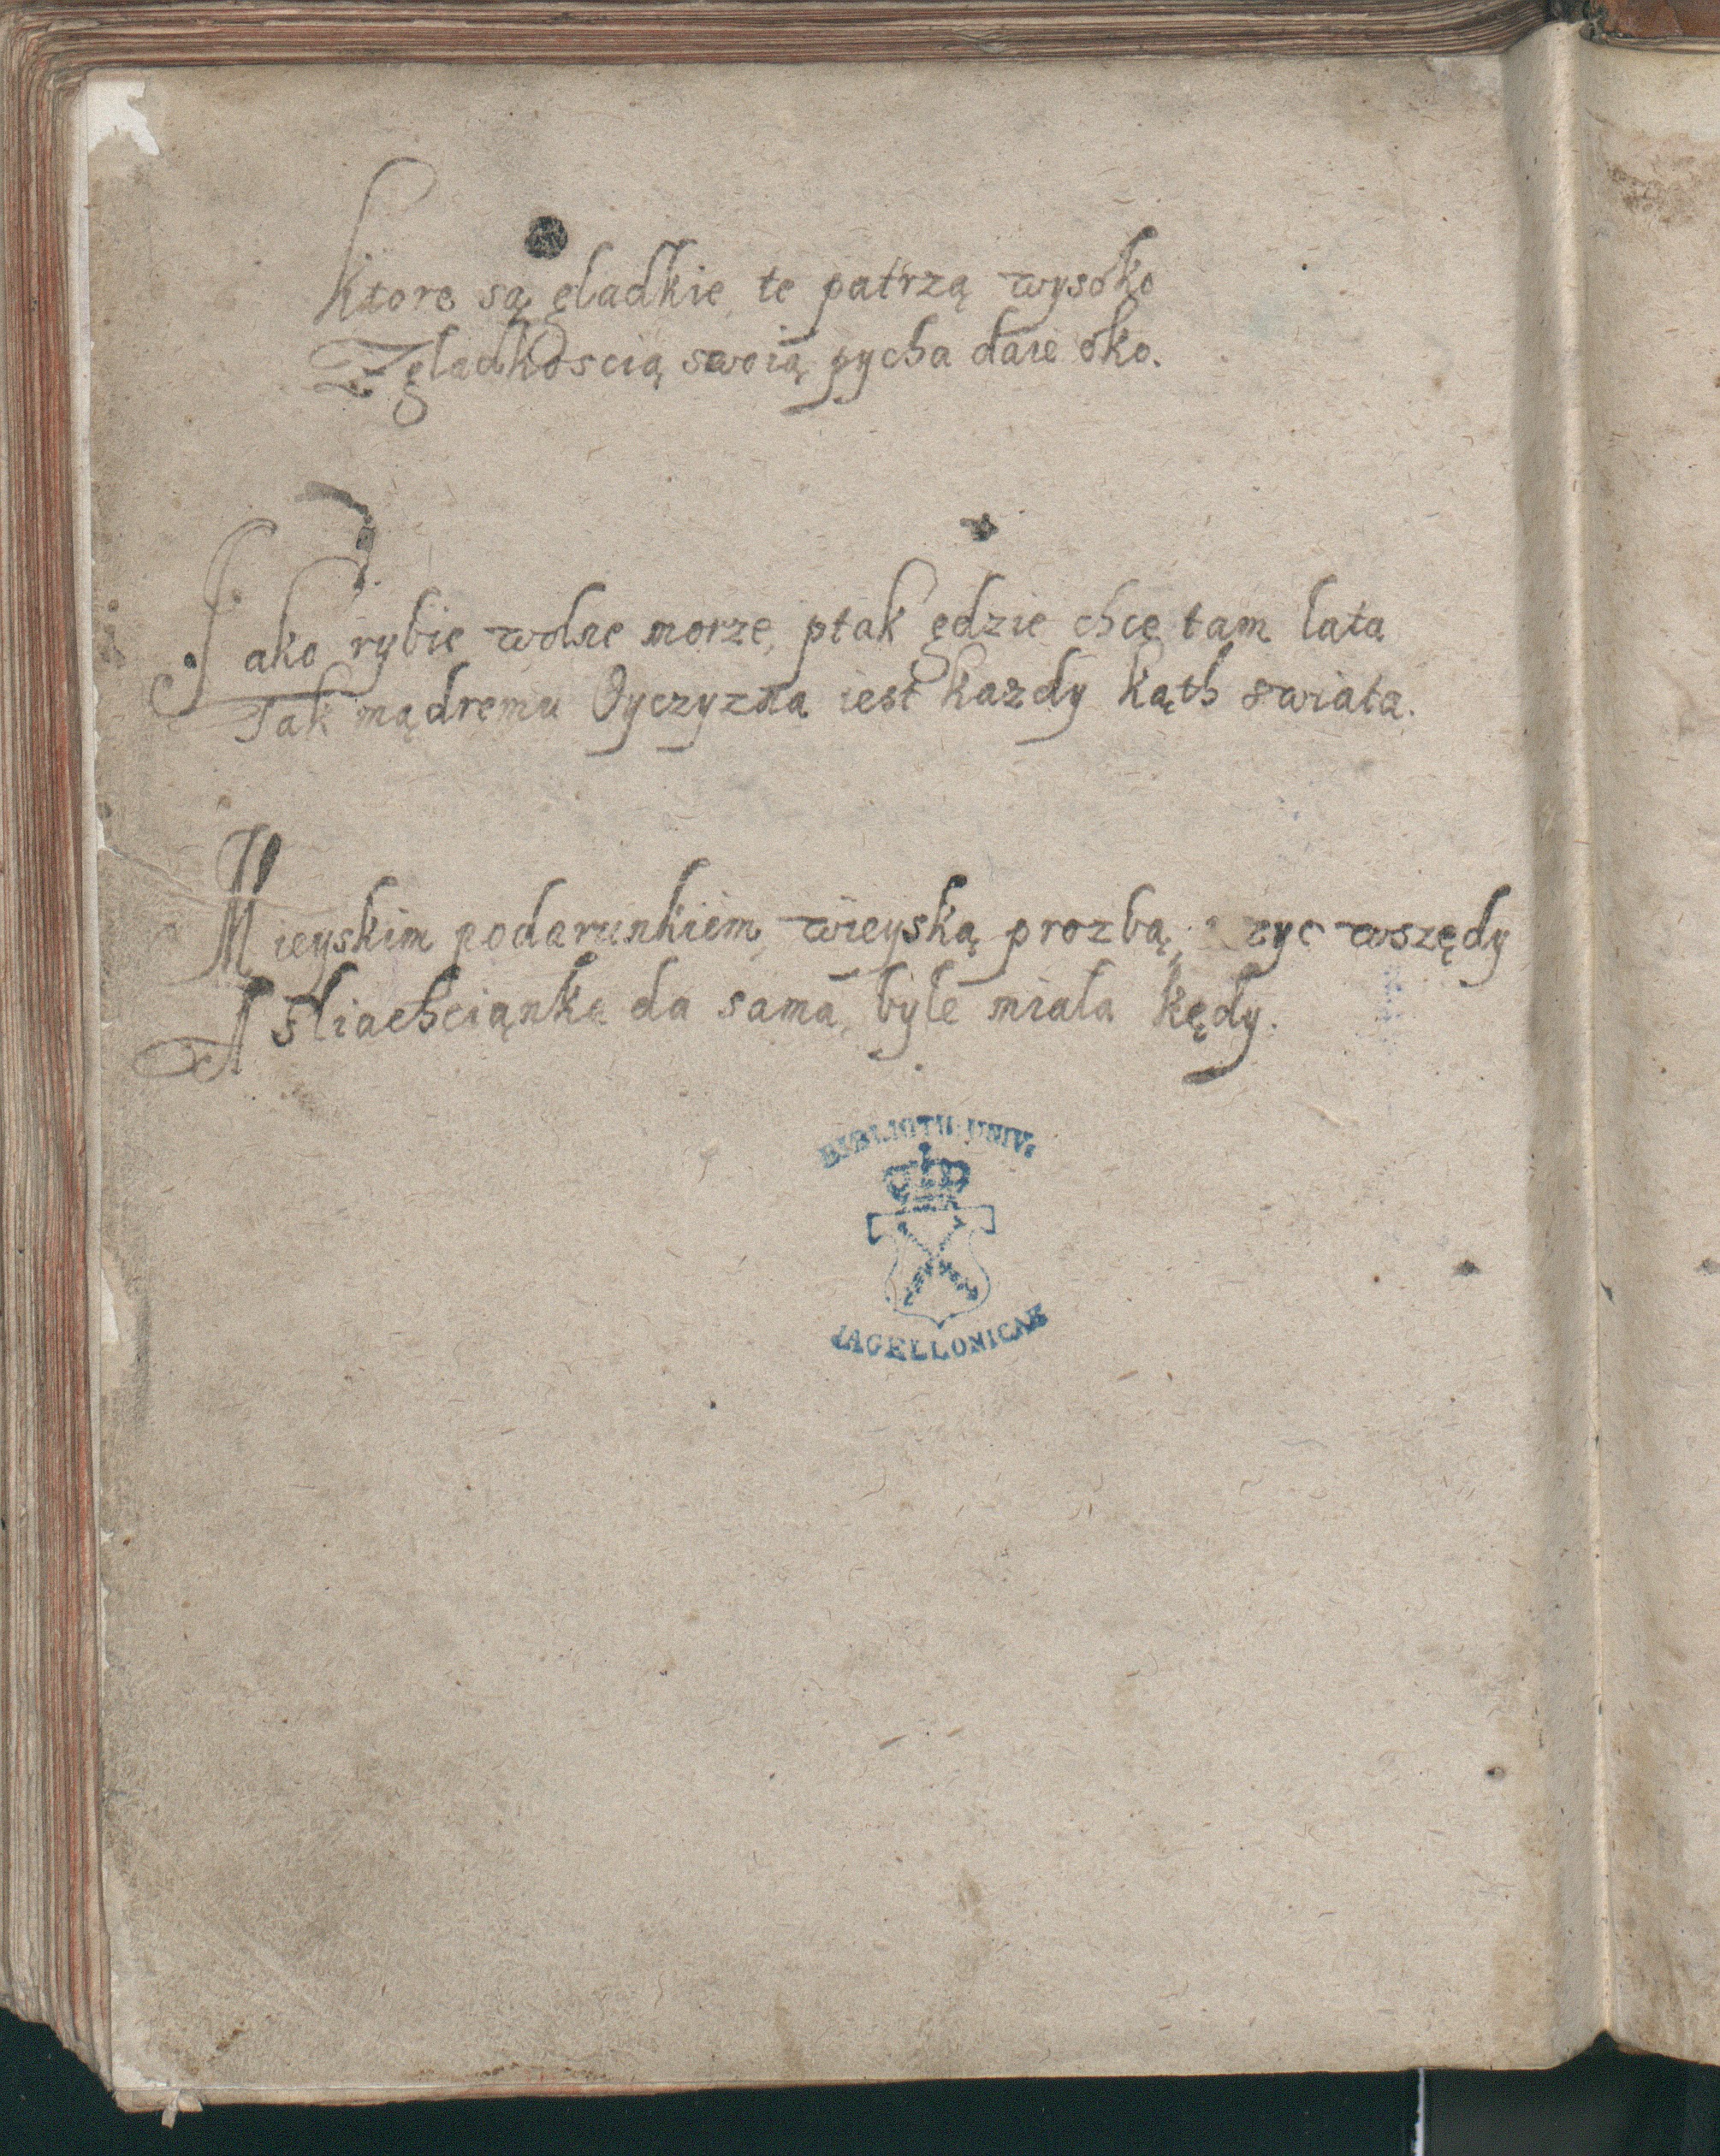 Ktore są gladkie, te patrzą wysoko
Z gladkoscią swoią pycha daie oko.
Jako rybie wolne morze, ptak gdzie chce tam lata
Tak mądremu Oyczyzna iest każdy kąth swiata.
Mieyskim podarunkiem, wieyską prozbą, zyc wszędy
A sliachcianka da sama, byle miala kędy.
BIBLIOTH. UNIV.
JAGELLONICAE